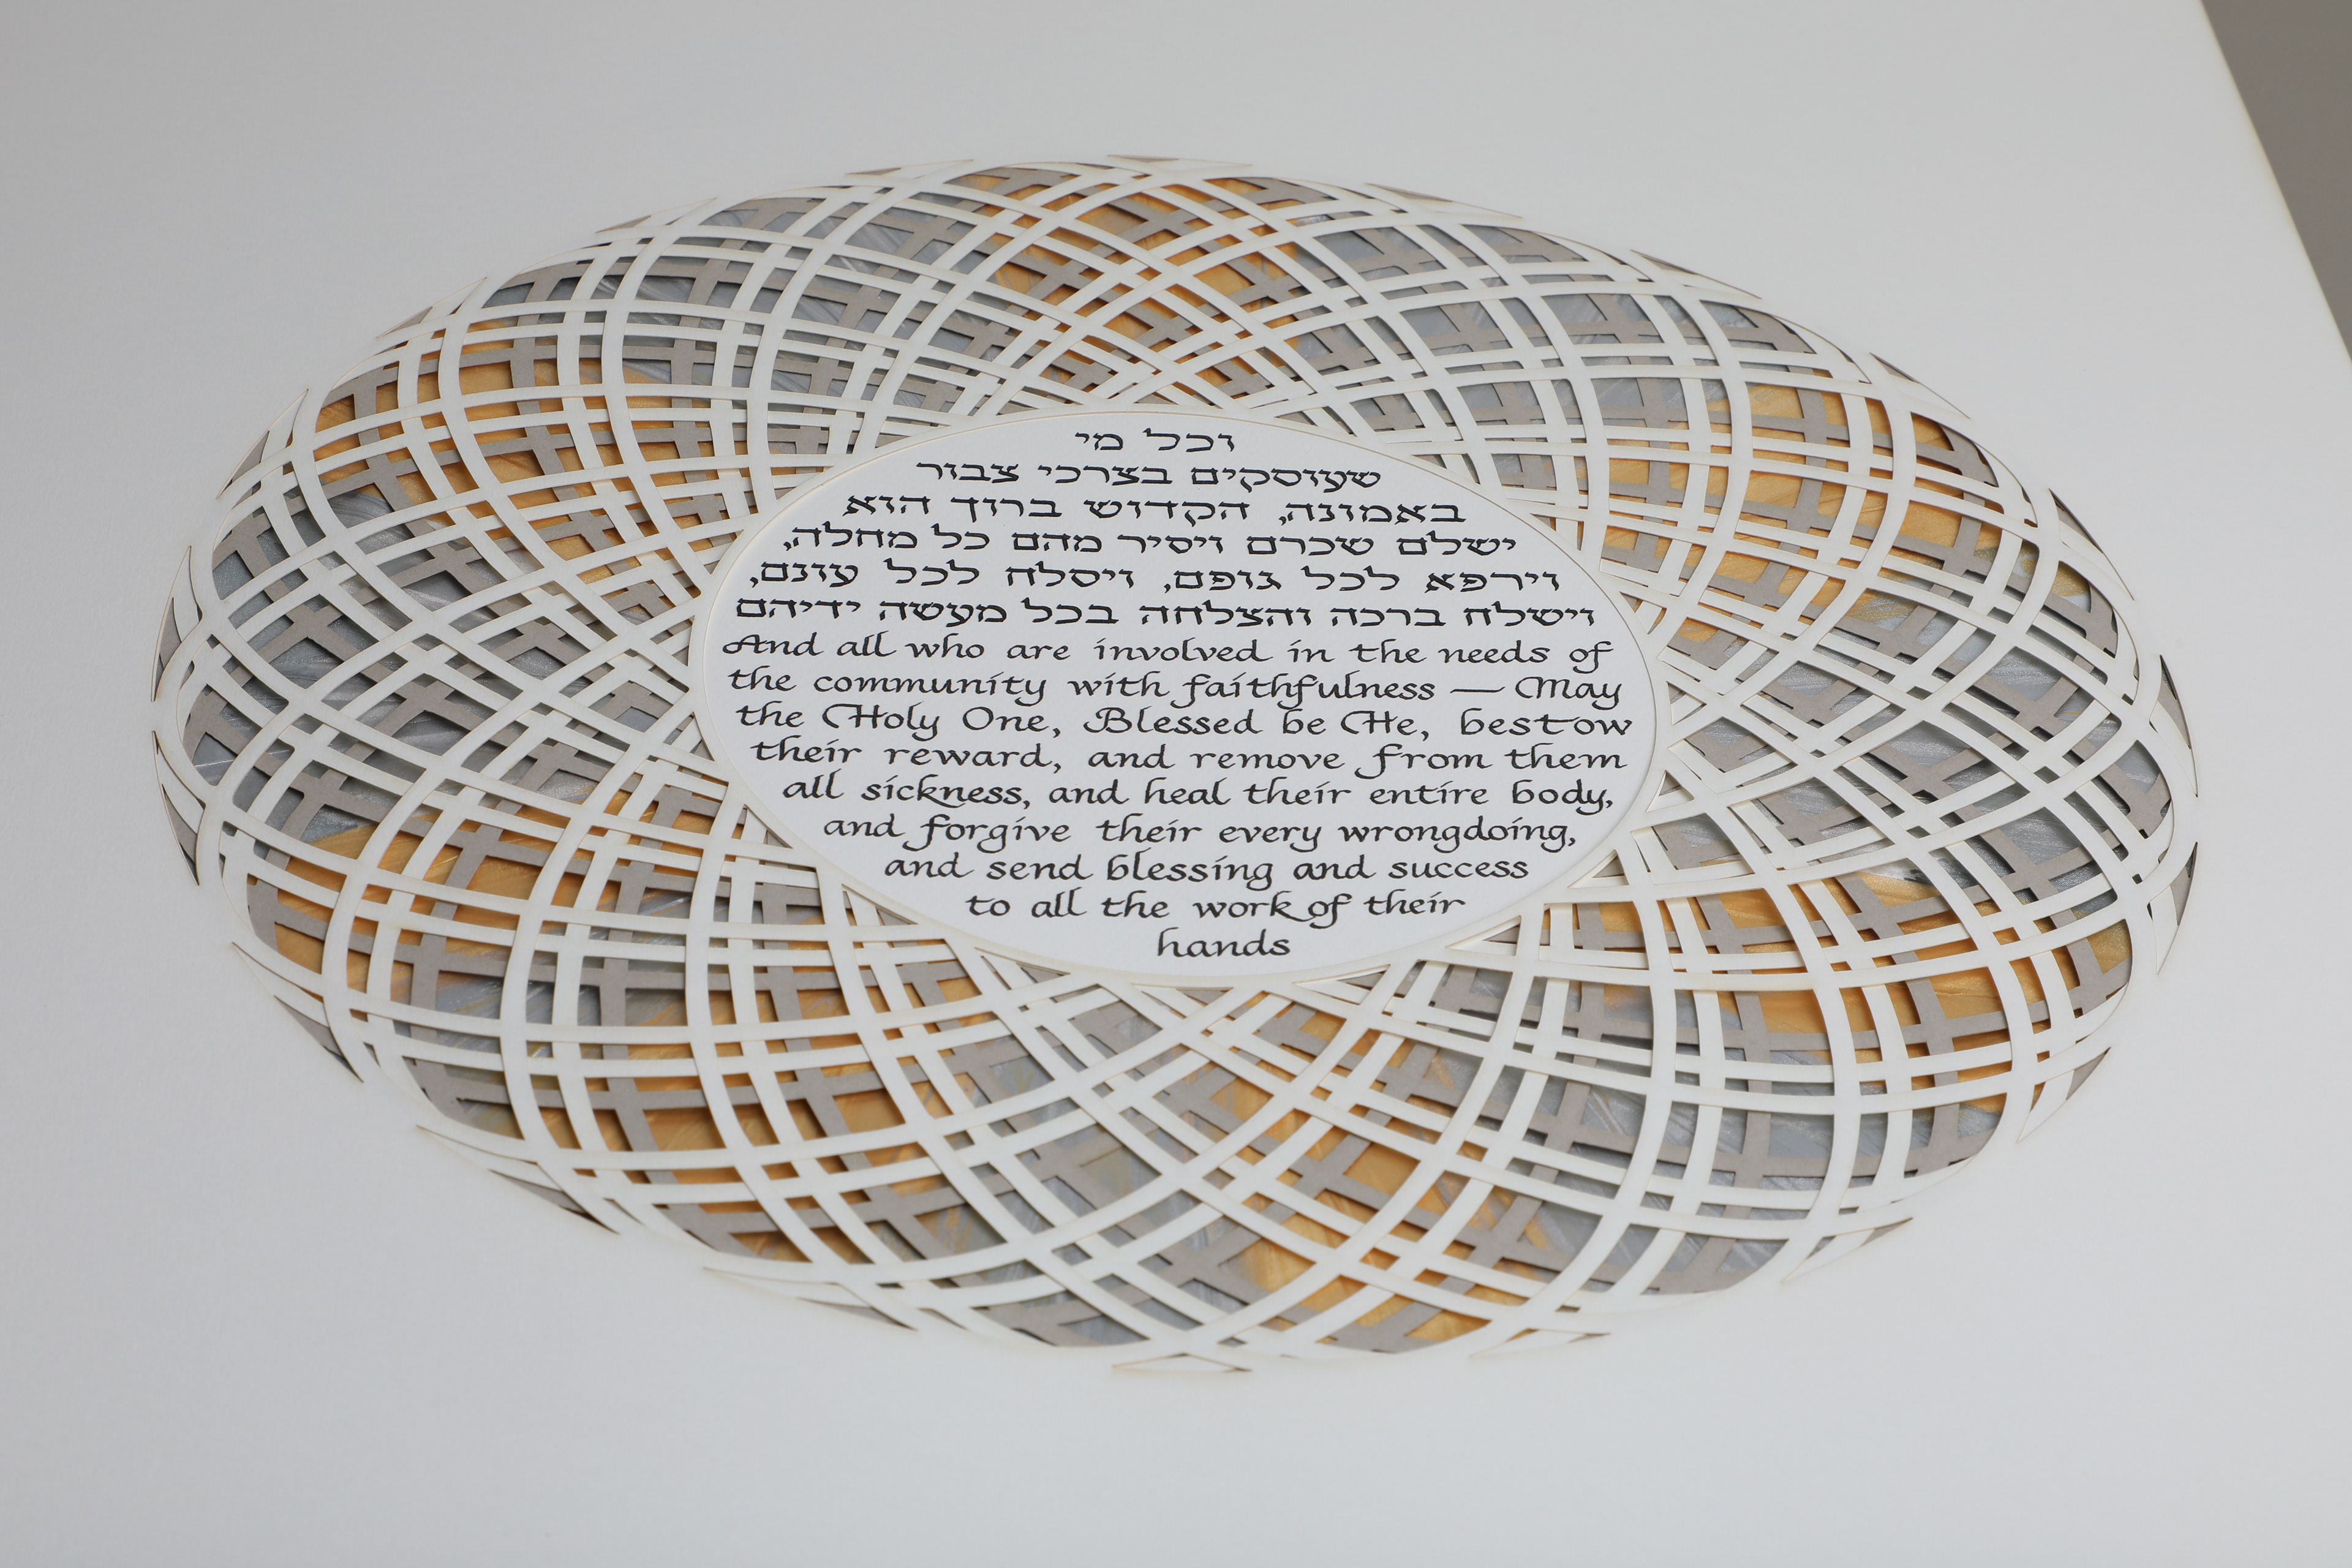 וכל מי
שעוסקים בצרכי צבור
באמונה, הקדוש ברוך הוא
ישלם שכרם ויסיר מהם כל מחלה,
וירפא לכל גופם, ויסלח לכל עונם,
וישלח ברכה והצלחה בכל מעשה ידיהם
And all who are involved in the needs of
the community with faithfulness — May
the Holy One, Blessed be He, bestow
their reward, and remove from them
all sickness, and heal their entire body,
and forgive their every wrongdoing,
and send blessing and success
to all the work of their
hands